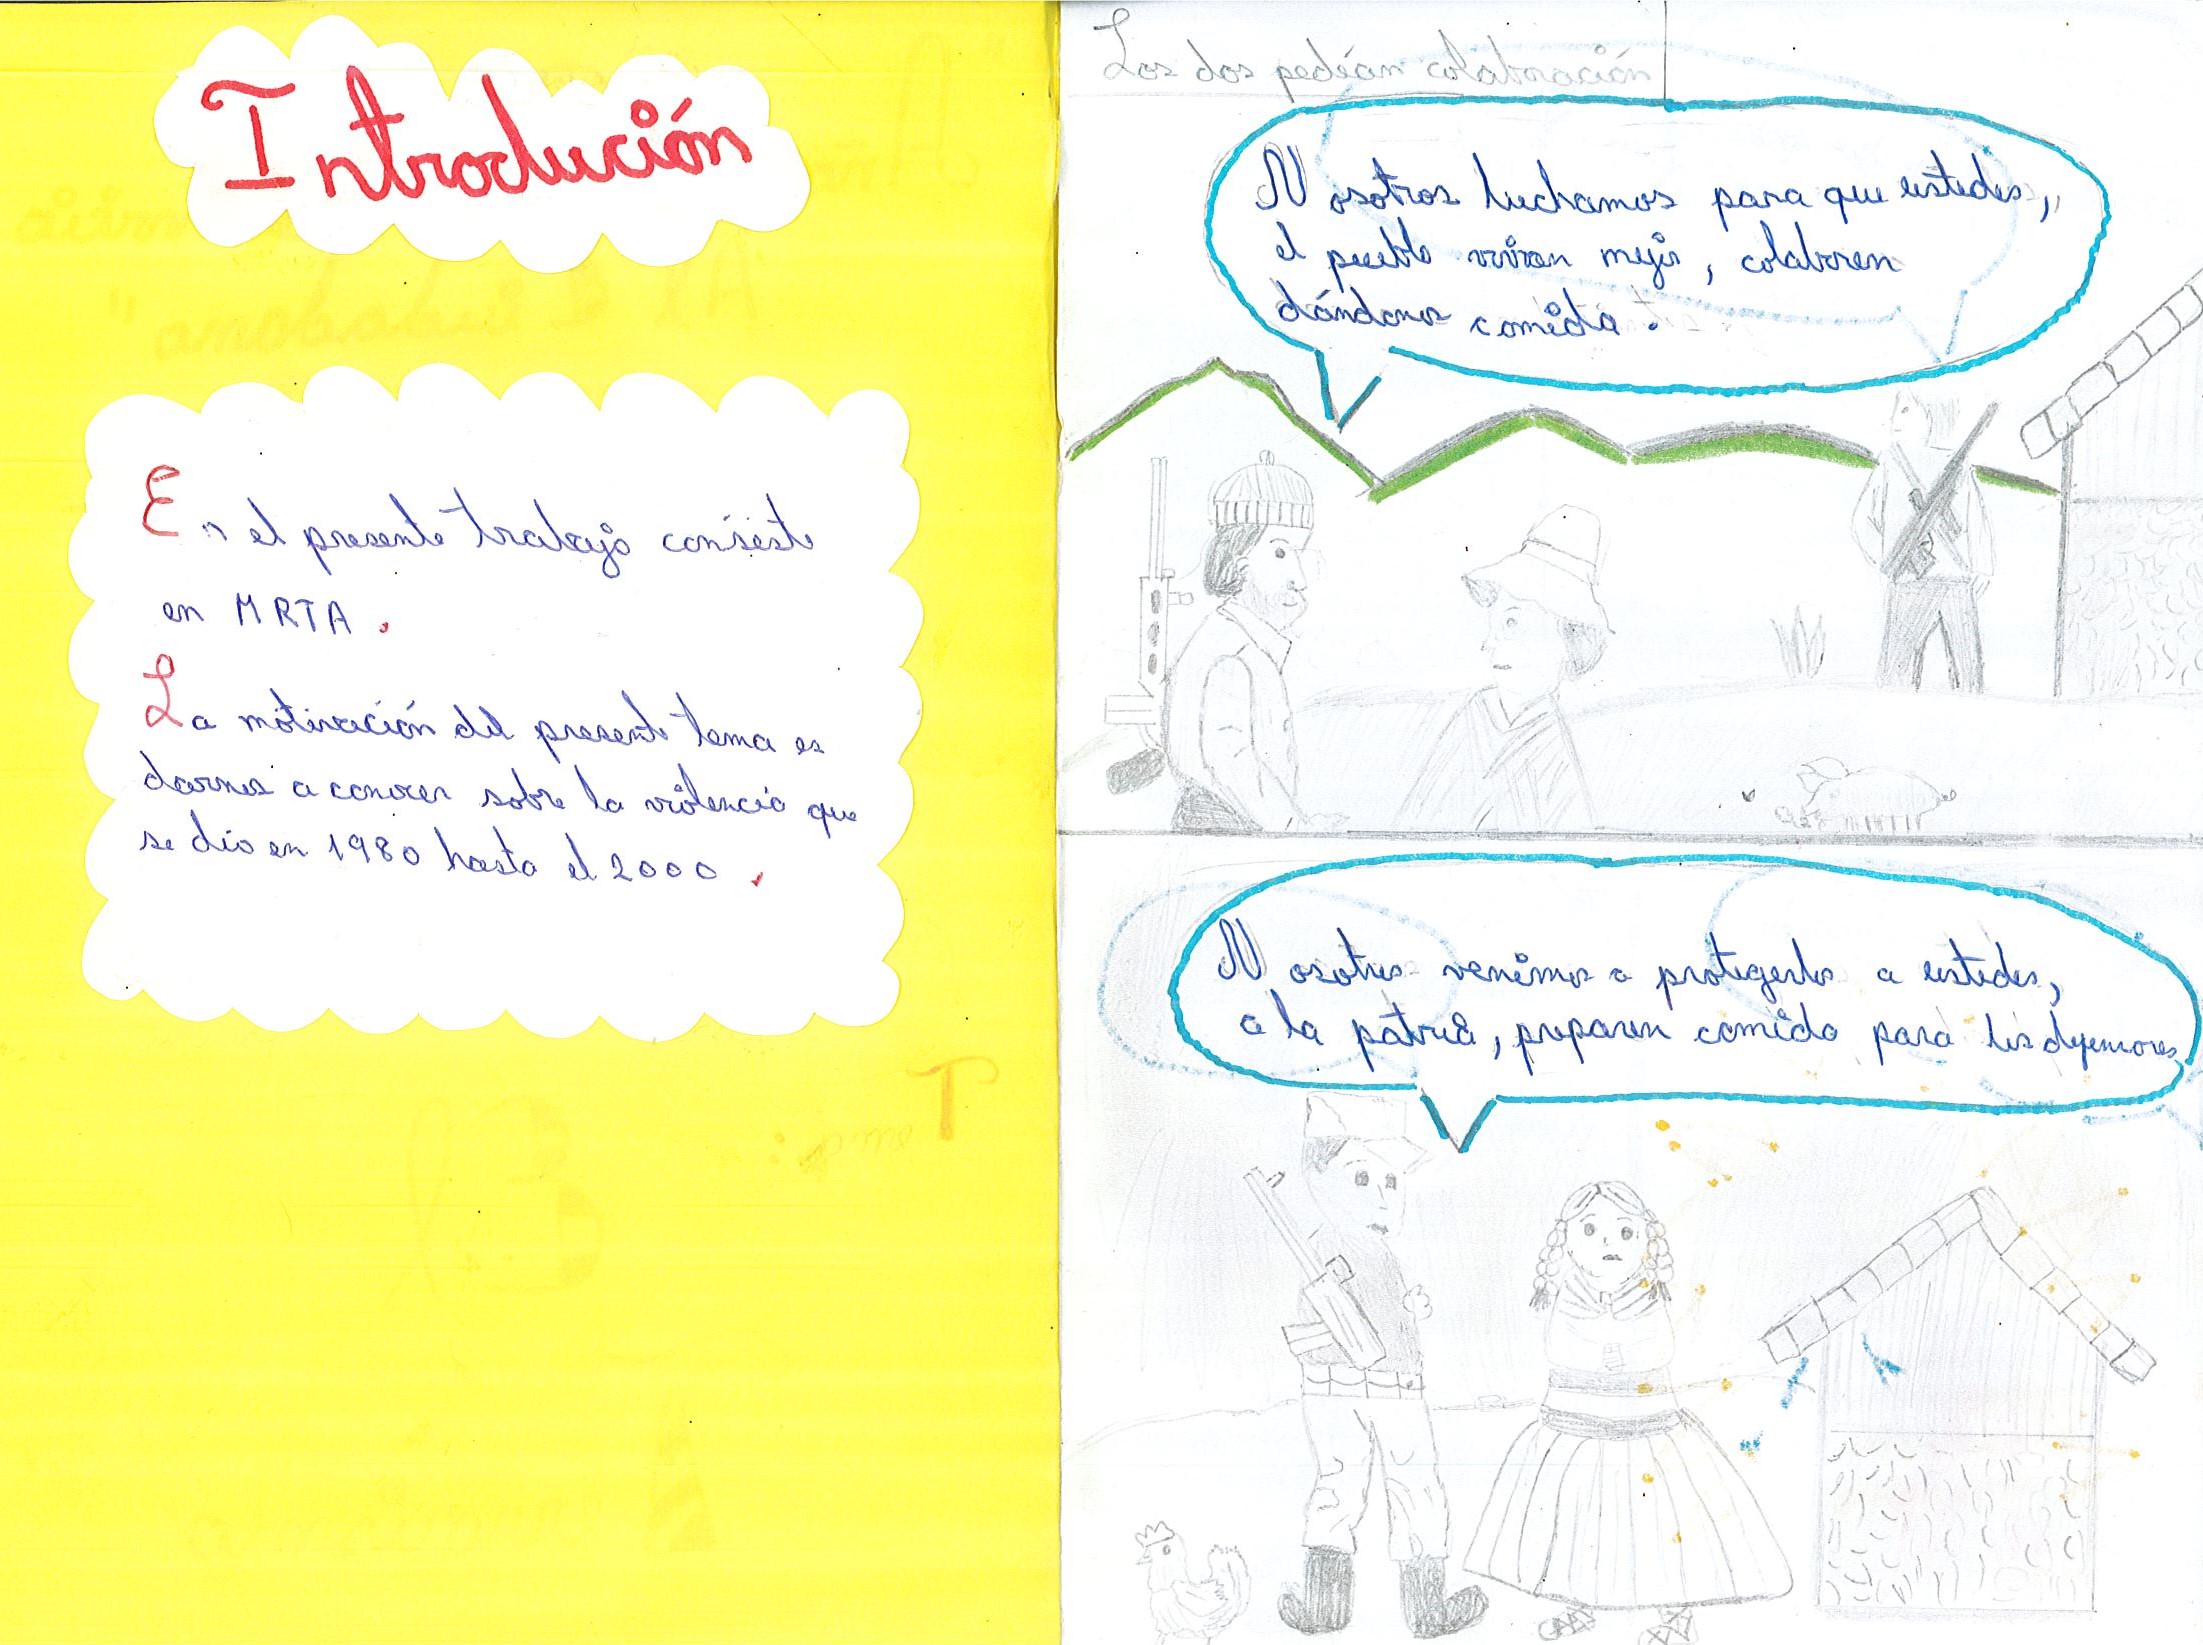 Introdución
En el presente trabajo consiste
en MRTA.
La motivación del presente tema es
darnos a conocer sobre la violencia que
se dio en 1980 hasta el 2000.
Los dos pedían colaboración
Nosotros luchamos para que ustedes,
el pueblo vivan mejor, colaboren
dándonos comida.
Nosotros venimos a protegerlos a ustedes,
a la patria, preparen comida para